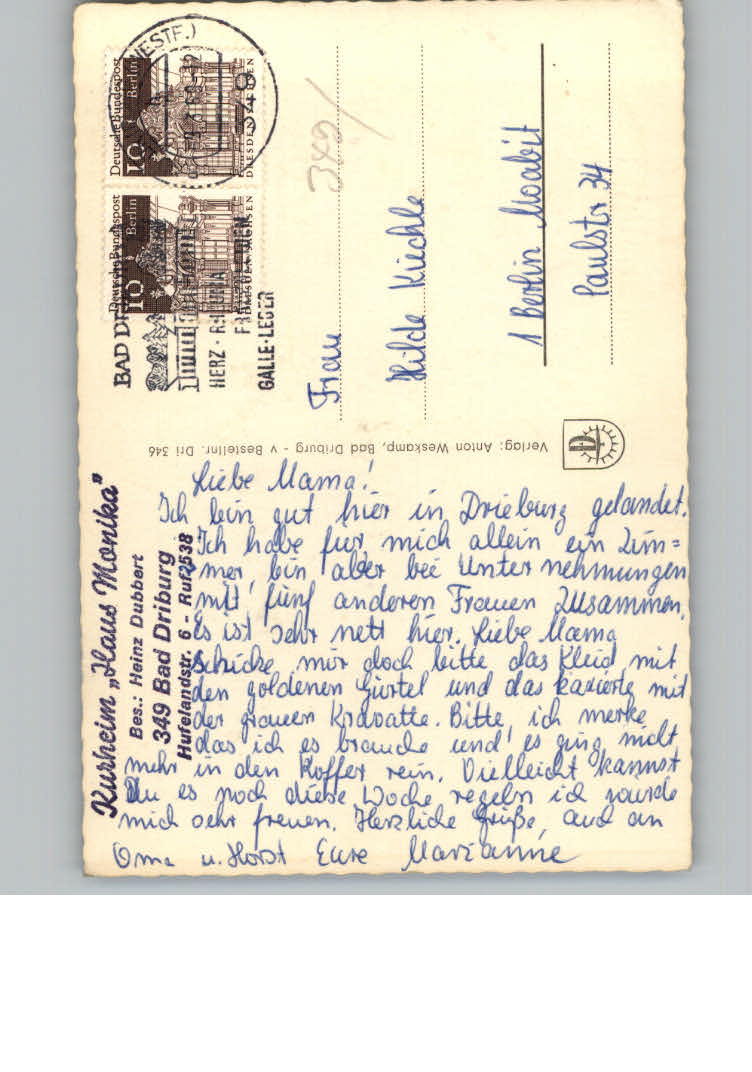 Liebe Mama!
Ich bin gut hier in Drieburg gelandet.
Ich habe für mich allein ein Zim=
mer, bin aber bei Unternehmungen
mit fünf anderen Frauen zusammen.
Es ist sehr nett hier. Liebe Mama
schicke mir doch bitte das Kleid mit
den goldenen Gürtel und das karierte mit
der grauen Kravatte. Bitte, ich merke
das ich es brauche und es ging nicht
mehr in den Koffer rein. Vielleicht kannst
Du es noch diese Woche regeln ich würde
mich sehr freuen. Herzliche Grüße, auch an
Oma u. Horst Eure Marianne
Kurheim „Haus Monika"
Bes.: Heinz Dubbert
349 Bad Driburg
Hufelandstr. 6 - Ruf 2538
Verlag: Anton Weskamp, Bad Driburg - v Bestellnr. Dri 346
D
Frau
Hilde Kiechle
1 Berlin Moabit
Paulstr 34
349
Deutsche Bundespost
Berlin
10
DRESDEN SACHSEN
Deutsche Bundespost
Berlin
10
SACHSEN
(WESTF.)
349
BAD DRI
HERZ · RHEUMA
FRAUENLEIDEN
GALLE · LEBER